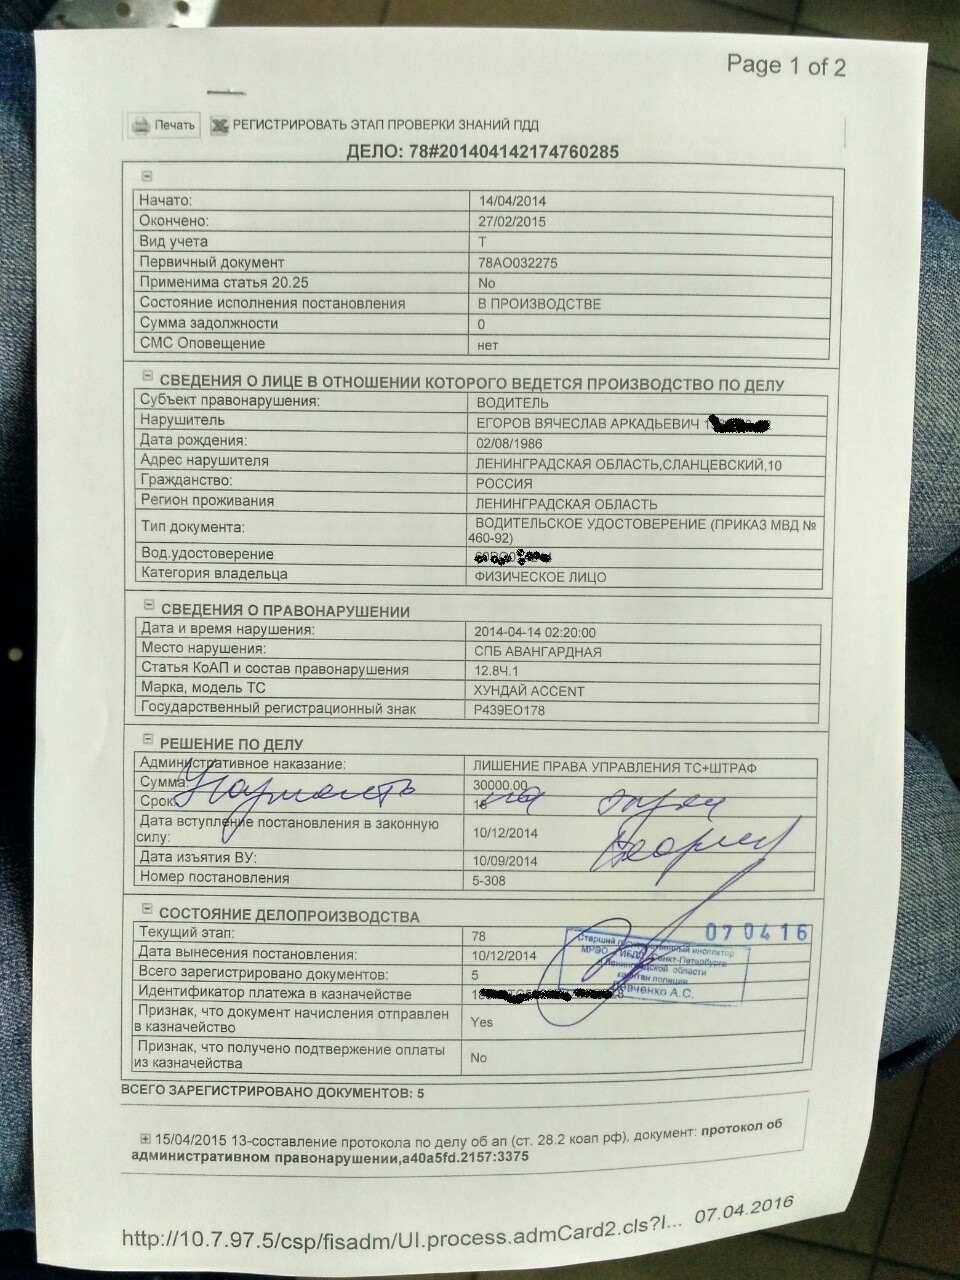 Page 1 of 2
Печать РЕГИСТРИРОВАТЬ ЭТАП ПРОВЕРКИ ЗНАНИЙ ПДД
ДЕЛО: 78#201404142174760285
Начато: 14/04/2014
Окончено: 27/02/2015
Вид учета Т
Первичный документ 78АО032275
Применима статья 20.25 No
Состояние исполнения постановления В ПРОИЗВОДСТВЕ
Сумма задолжности 0
СМС Оповещение нет
СВЕДЕНИЯ О ЛИЦЕ В ОТНОШЕНИИ КОТОРОГО ВЕДЕТСЯ ПРОИЗВОДСТВО ПО ДЕЛУ
Субъект правонарушения: ВОДИТЕЛЬ
Нарушитель ЕГОРОВ ВЯЧЕСЛАВ АРКАДЬЕВИЧ
Дата рождения: 02/08/1986
Адрес нарушителя ЛЕНИНГРАДСКАЯ ОБЛАСТЬ,СЛАНЦЕВСКИЙ,10
Гражданство: РОССИЯ
Регион проживания ЛЕНИНГРАДСКАЯ ОБЛАСТЬ
Тип документа: ВОДИТЕЛЬСКОЕ УДОСТОВЕРЕНИЕ (ПРИКАЗ МВД №
460-92)
Вод.удостоверение
Категория владельца ФИЗИЧЕСКОЕ ЛИЦО
СВЕДЕНИЯ О ПРАВОНАРУШЕНИИ
Дата и время нарушения: 2014-04-14 02:20:00
Место нарушения: СПБ АВАНГАРДНАЯ
Статья КоАП и состав правонарушения 12.8Ч.1
Марка, модель ТС ХУНДАЙ ACCENT
Государственный регистрационный знак Р439ЕО178
РЕШЕНИЕ ПО ДЕЛУ
Административное наказание: ЛИШЕНИЕ ПРАВА УПРАВЛЕНИЯ ТС+ШТРАФ
Сумма: 30000.00
Срок: 18
на
Дата вступление постановления в законную
силу: 10/12/2014
Дата изъятия ВУ: 10/09/2014
Номер постановления 5-308
СОСТОЯНИЕ ДЕЛОПРОИЗВОДСТВА
Текущий этап: 78
070416
Дата вынесения постановления: 10/12/2014
Всего зарегистрировано документов: 5
Идентификатор платежа в казначействе
Старший государственный инспектор
МРЭО ГИБДД Санкт-Петербурге
и Ленинградской области
капитан полиции
Левченко А.С.
Признак, что документ начисления отправлен
в казначейство Yes
Признак, что получено подтвержение оплаты
из казначейства No
ВСЕГО ЗАРЕГИСТРИРОВАНО ДОКУМЕНТОВ: 5
15/04/2015 13-составление протокола по делу об ап (ст. 28.2 коап рф), документ: протокол об
административном правонарушении,a40a5fd.2157:3375
http://10.7.97.5/csp/fisadm/UI.process.admCard2.cls?I... 07.04.2016